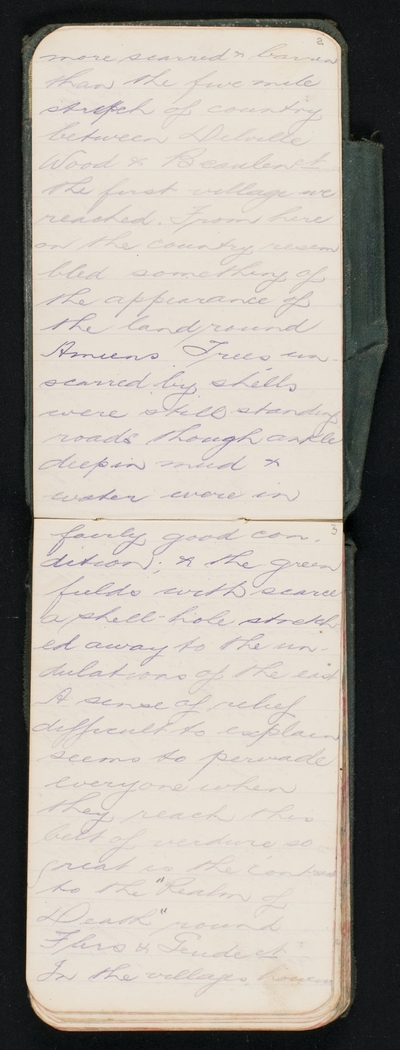 2
more scarred & barren
than the five mile
stretch of country
between Delville
Wood & Beaulencourt
the first village we
reached. From here
on the country resem
bled something of
the appearance of
the land round
Amiens Trees un-
scarred by shells
were still standing
roads though ankle
deep in mud &
water were in
3
fairly good con-
dition; & the green
fields with scarce
a shell-hole stretch
ed away to the un-
dulations of the east
A sense of relief
difficult to explain
seems to pervade
everyone when
they reach this
belt of verdure so
great is the contrast
to the "Realm of
Death" round
Flers &
In the villages, however